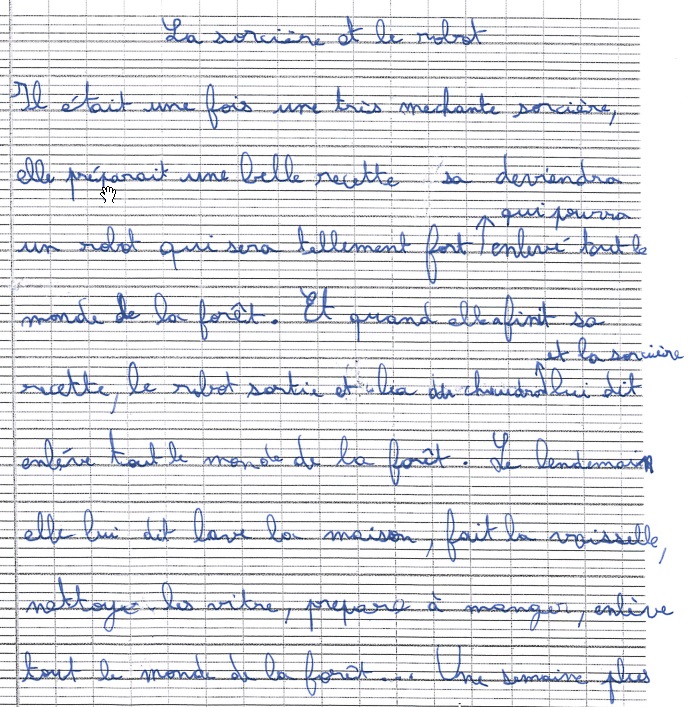 La sorcière et le robot
Il était une fois une très mechante sorcière,
elle préparait une belle recette sa deviendra
qui pourra
un robot qui sera tellement fort enlevé tout le
monde de la forêt. Et quand elle a finit sa
et la sorcière
recette, le robot sortie et du chaudro lui dit
enléve tout le monde de la forêt. Le lendemain
elle lui dit lave la maison, fait la vaisselle,
nettoye les vitre, prepare à manger, enlève
tout le monde de la forêt... Une semaine plus